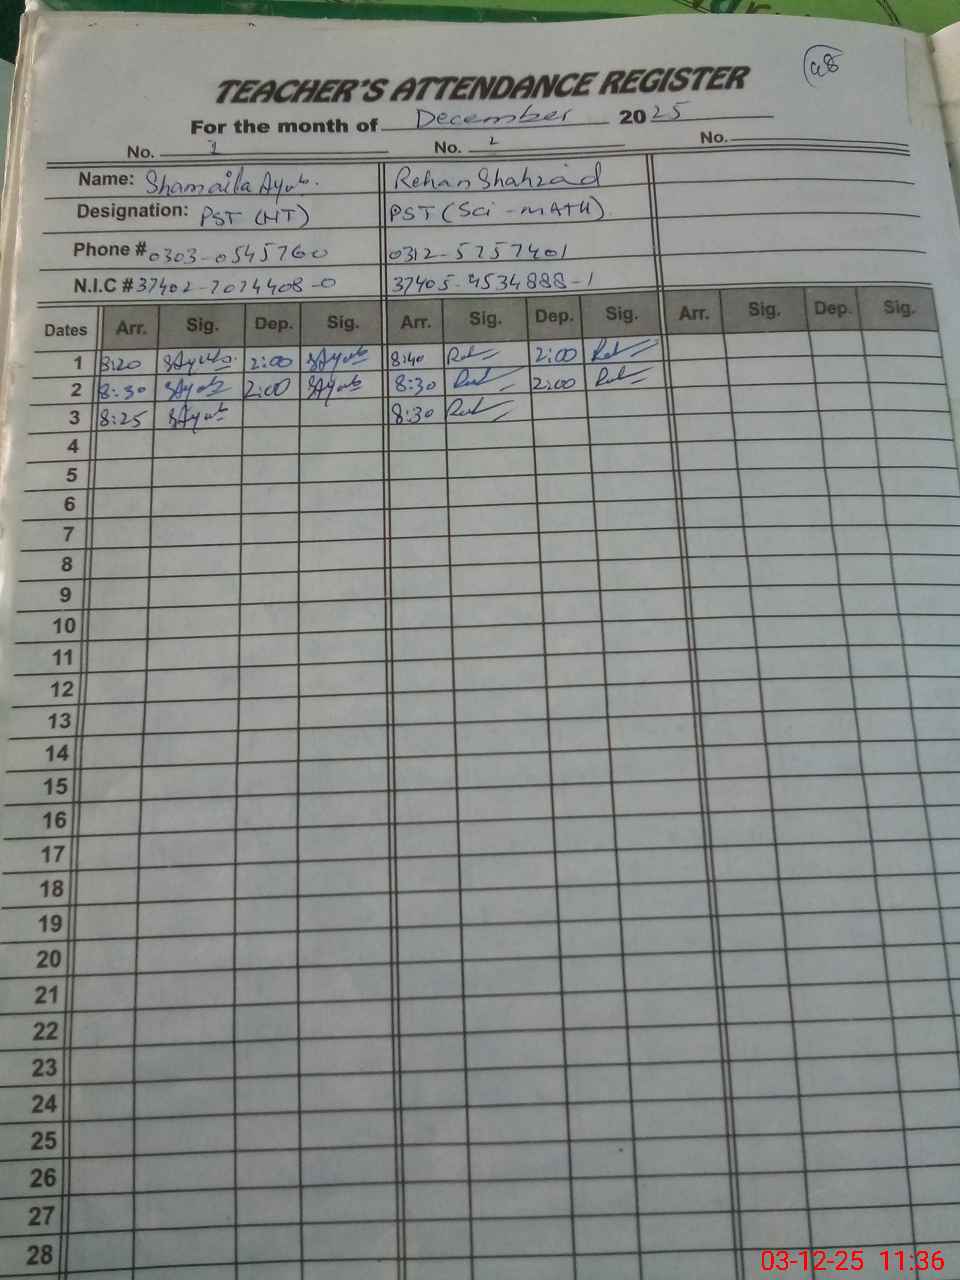 98
TEACHER'S ATTENDANCE REGISTER
For the month of December 2025
No. 1 No. 2 No.
Name: Shamaila Ayub. Rehan Shahzad
Designation: PST (HT) PST (Sci-MATH).
Phone # 0303-0545760 0312-5757401
N.I.C # 37402-7074408-0 37405-4534888-1
Dates Arr. Sig. Dep. Sig. Arr. Sig. Dep. Sig. Arr. Sig. Dep. Sig.
1 8:20 SAyub 2:00 SAyub 8:40 2:00
2 8:30 SAyub 2:00 SAyub 8:30 2:00
3 8:25 SAyub 8:30
4
5
6
7
8
9
10
11
12
13
14
15
16
17
18
19
20
21
22
23
24
25
26
27
28
03-12-25 11:36